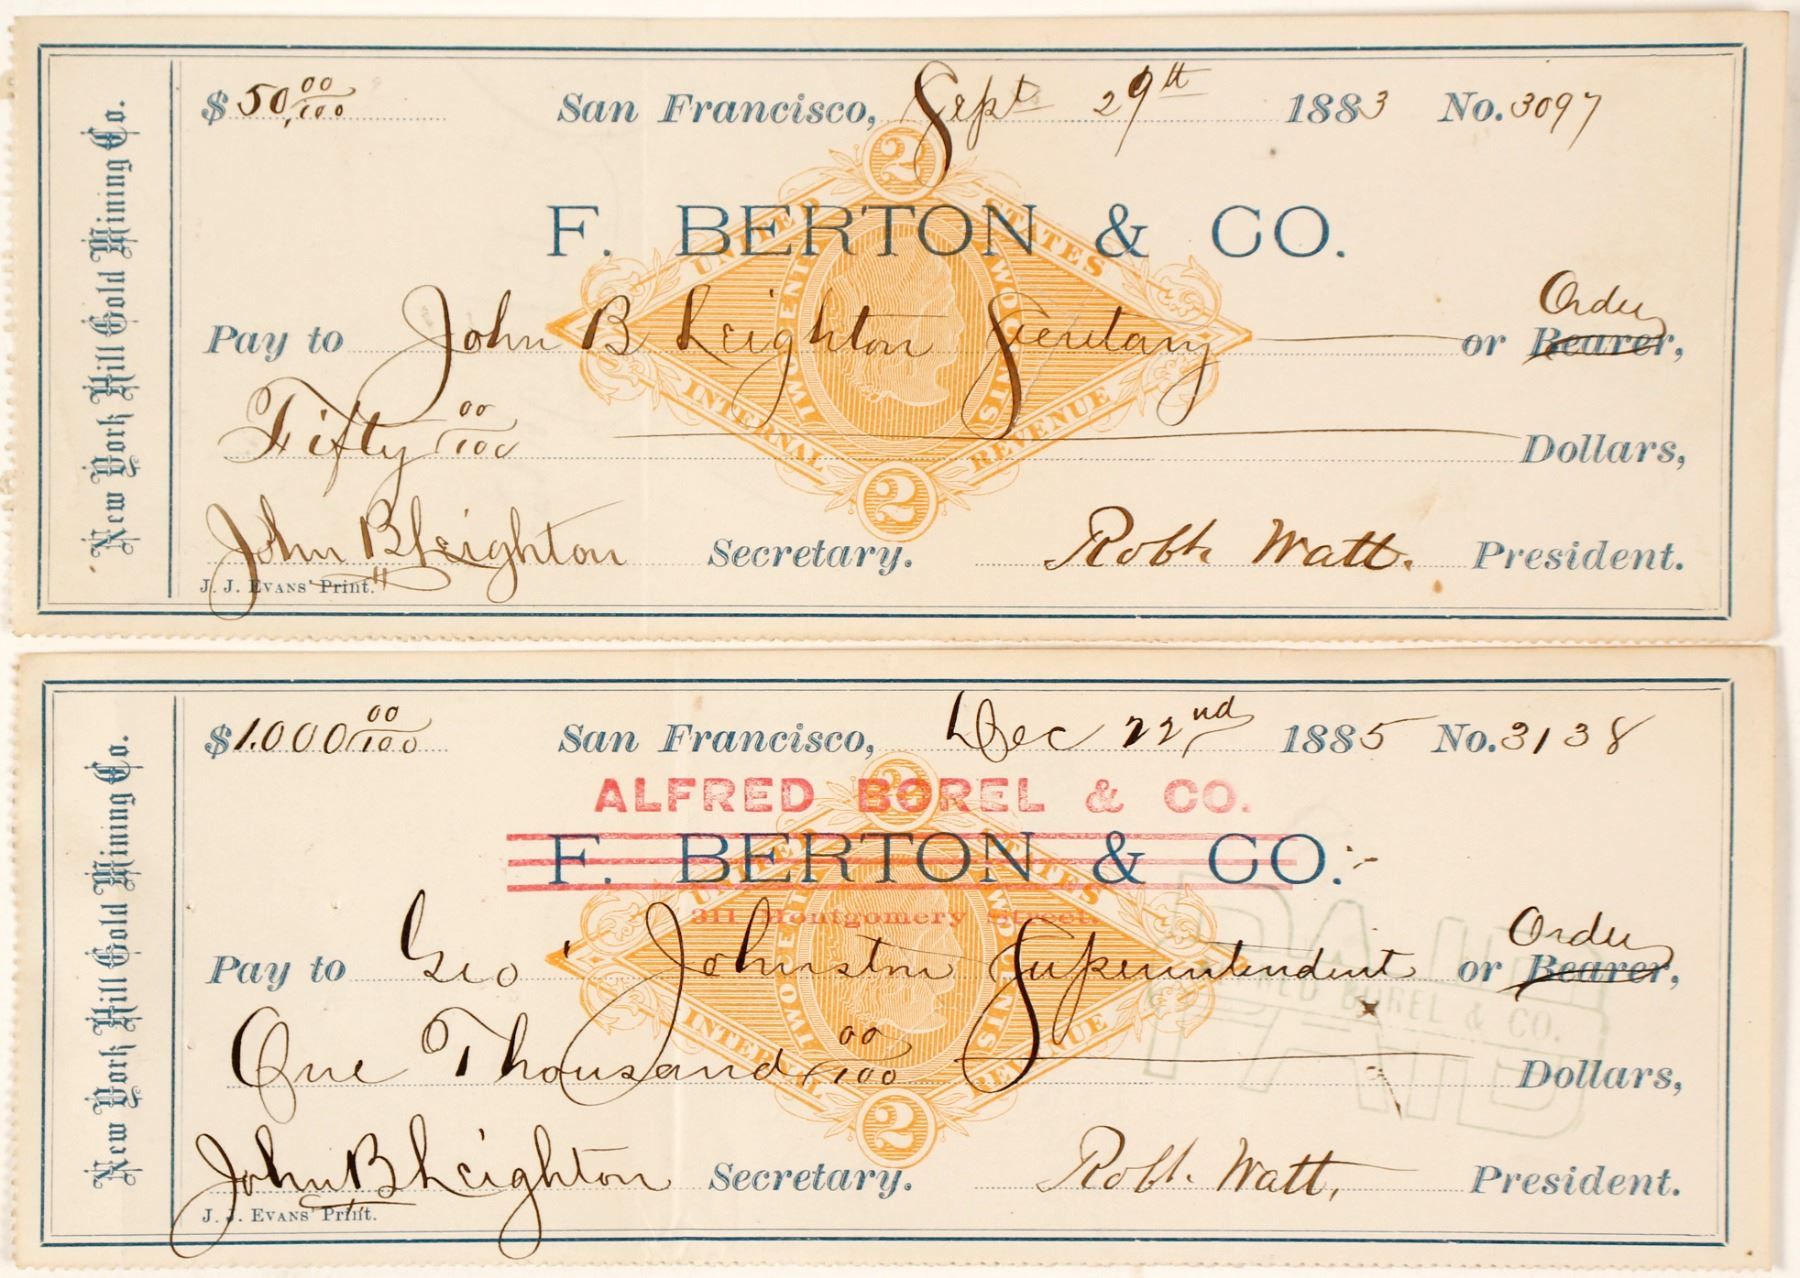 New York Hill Gold Mining Co.
$ 50,00/100 San Francisco, Sept 29th 1883 No. 3097
2
F. BERTON & CO.
UNITED STATES
TWO CENTS
Order
Pay to John B Leighton Secretary or Bearer,
INTERNAL REVENUE
Fifty 00/100 Dollars,
2
John B Leighton Secretary. Robt. Watt. President.
J. J. EVANS' Print.
New York Hill Gold Mining Co.
$ 1.000 00/100 San Francisco, Dec 22nd 1885 No. 3138
2
ALFRED BOREL & CO.
F. BERTON & CO.
UNITED STATES
311 Montgomery Street.
Order
Pay to Geo Johnston Superintendent or Bearer,
PAID
ALFRED BOREL & CO.
PAID
INTERNAL REVENUE
One Thousand 00/100 Dollars,
2
John B Leighton Secretary. Robt. Watt, President.
J. J. EVANS' Print.